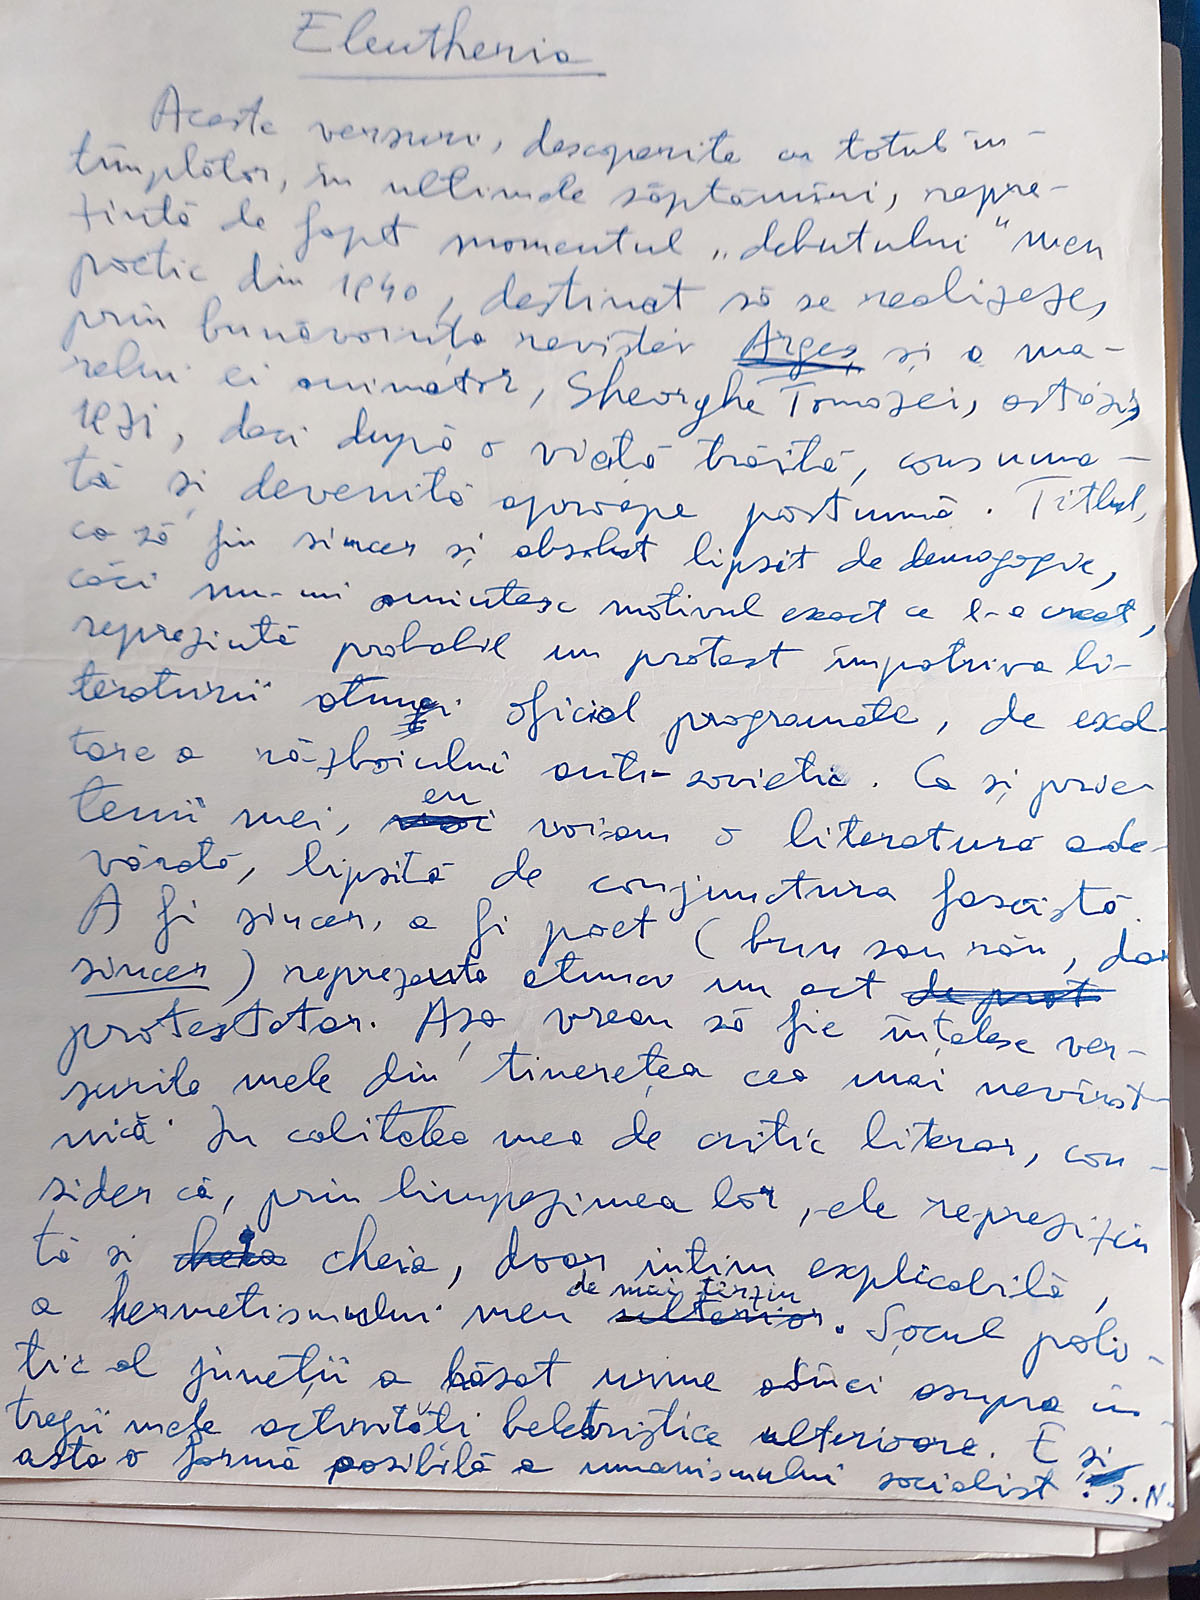 Eleutheria
Aceste versuri, descoperite cu totul în-
tîmplător, în ultimele săptămîni, repre-
zintă de fapt momentul „debutului" meu
poetic din 1940, destinat să se realizeze,
prin bunăvoința revistei Argeș și a ma-
relui ei animator, Gheorghe Tomozei, astăzi,
1971, deci după o viață trăită, consuma-
tă și devenită aproape postumă. Titlul,
ca să fiu sincer și absolut lipsit de demagogie,
căci nu-mi amintesc motivul exact ce l-a creat,
reprezintă probabil un protest împotriva li-
teraturii atunci oficial programate, de exal-
tare a războiului anti-sovietic. Ca și prie-
tenii mei, eu voiam o literatură ade-
vărată, lipsită de conjunctura fascistă.
A fi sincer, a fi poet (bun sau rău, dar
sincer) reprezenta atunci un act de prot
protestatar. Așa vreau să fie înțelese ver-
surile mele din tinerețea cea mai nevîrst-
nică. În calitatea mea de critic literar, con-
sider că, prin limpezimea lor, ele reprezin
tă și cheia cheia, doar intim explicabilă,
a hermetismului meu de mai tîrziu ulterior. Șocul poli-
tic al juneții a lăsat urme adînci asupra în-
tregii mele activități beletristice ulterioare. E și
asta o formă posibilă a umanismului socialist. I.N.